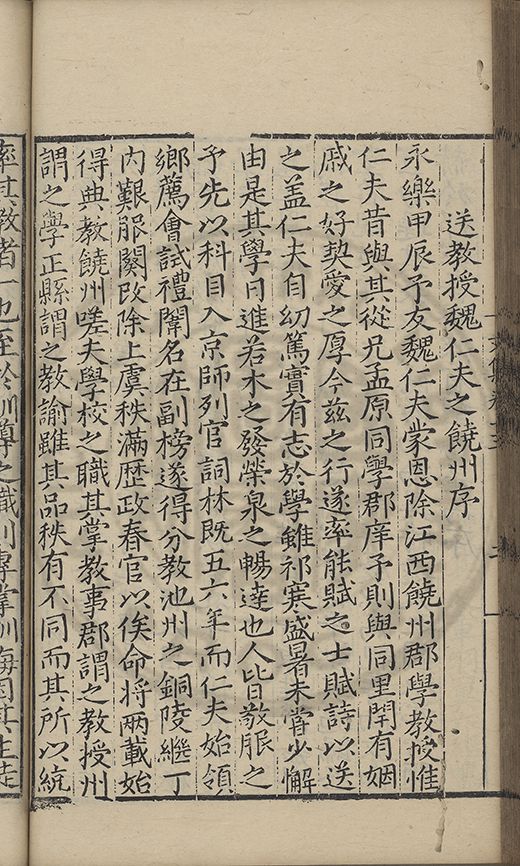 送教授魏仁夫之饒州序
永樂甲辰予友魏仁夫蒙恩除江西饒州郡學教授惟
仁夫昔與其從兄孟原同學郡庠予則與同里閈有姻
戚之好契愛之厚今茲之行遂率能賦之士賦詩以送
之盖仁夫自幼篤實有志於學雖祁寒盛暑未嘗少懈
由是其學日進若木之發榮泉之暢達也人皆敬服之
予先以科目入京師列官詞林既五六年而仁夫始領
鄉薦會試禮闈名在副榜遂得分教池州之銅陵繼丁
内艱服闋改除上虞秩滿歷政春官以俟命將兩載始
得典教饒州嗟夫學校之職其掌教事郡謂之教授州
謂之學正縣謂之教諭雖其品秩有不同而其所以統
率其教者一也至於訓導之職則專掌訓誨因其生徒